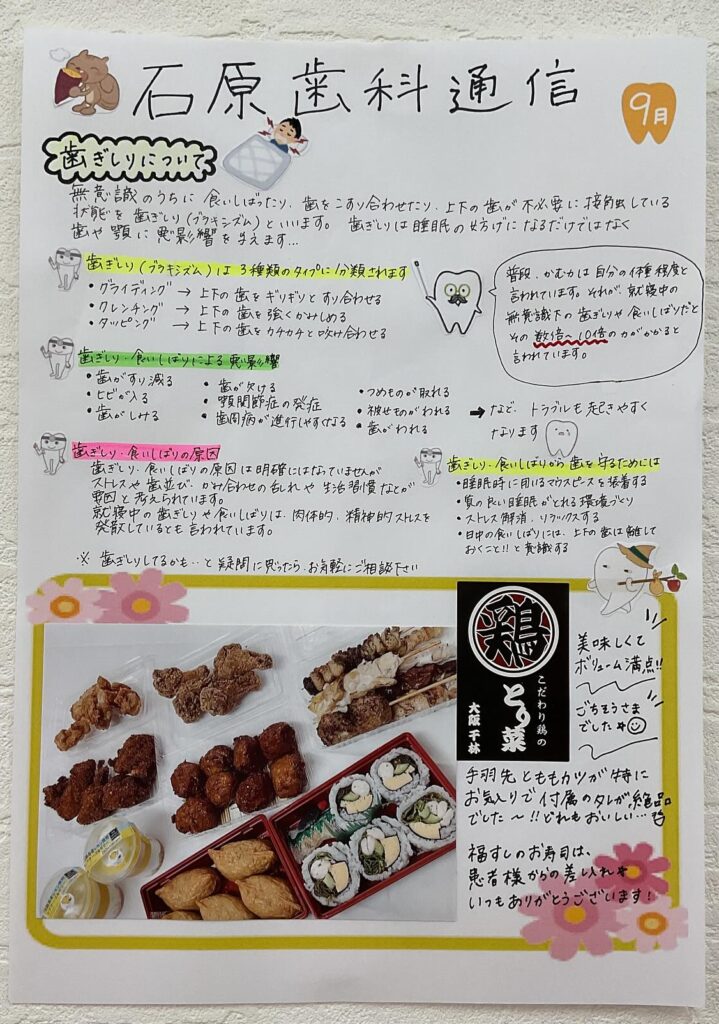 石原歯科通信
9月
歯ぎしりについて
無意識のうちに食いしばったり、歯をこすり合わせたり、上下の歯が不必要に接触している
状態を歯ぎしり(ブラキシズム)といいます。歯ぎしりは睡眠の妨げになるだけではなく
歯や顎に悪影響を与えます…
歯ぎしり(ブラキシズム)は3種類のタイプに分類されます
・グライディング → 上下の歯をギリギリとすり合わせる
・クレンチング → 上下の歯を強くかみしめる
・タッピング → 上下の歯をカチカチと咬み合わせる
普段、かむ力は自分の体種程度と
言われています。それが、就寝中の
無意識下の歯ぎしりや食いしばりだと
その数倍〜10倍の力がかかると
言われています。
歯ぎしり・食いしばりによる悪影響
・歯がすり減る
・ヒビが入る
・歯がしみる
・歯が欠ける
・顎関節症の発症
・歯周病が進行しやすくなる
・つめものが取れる
・被せものがわれる
・歯がわれる
→ など、トラブルも起きやすく
なります
歯ぎしり・食いしばりの原因
歯ぎしり・食いしばりの原因は明確にはなっていませんが
ストレスや歯並び、かみ合わせの乱れや生活習慣などが
要因と考えられています。
就寝中の歯ぎしりや食いしばりは、肉体的、精神的ストレスを
発散しているとも言われています。
歯ぎしり・食いしばりから歯を守るためには
・睡眠時に用いるマウスピースを装着する
・質の良い睡眠がとれる環境づくり
・ストレス解消、リラックスする
・日中の食いしばりには、上下の歯は離して
おくこと!!と意識する
※ 歯ぎしりしてるかも‥と疑問に思ったら、お気軽にご相談下さい
鶏
こだわり鶏の
とり菜
大阪 千林
美味しくて
ボリューム満点!!
ごちそうさま
でした☆
手羽先とももカツが特に
お気入りで付属のタレが絶品
でした〜!!どれもおいしい…
福すしのお寿司は、
患者様からの差し入れ☆
いつもありがとうございます!